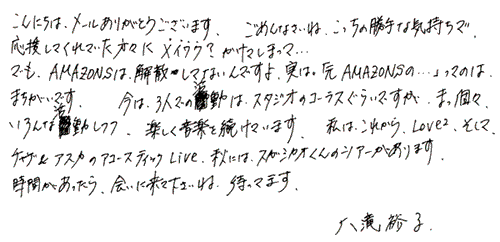 こんにちは、メールありがとうございます。 ごめんなさいね、こっちの勝手な気持ちで、
応援してくれていた方々に メイワク？かけてしまって…
でも、AMAZONSは、解散してないんですよ、実は。元AMAZONSの…ってのは、
まちがいです。 今は、3人での活動は、スタジオのコーラスぐらいですが、ま、個々、
いろんな活動しつつ、楽しく音楽を続けています。 私は、これから、Love2、そして、
チャゲ&アスカのアコースティックLive、秋には、スガシカオくんのツアーがあります。
時間があったら、会いに来て下さいね、待ってます。
大滝裕子